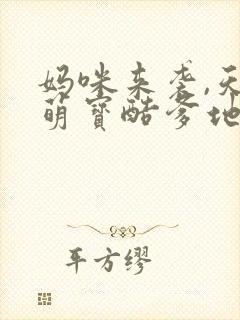 妈咪来袭,天
萌宝酷爹地
平方缪